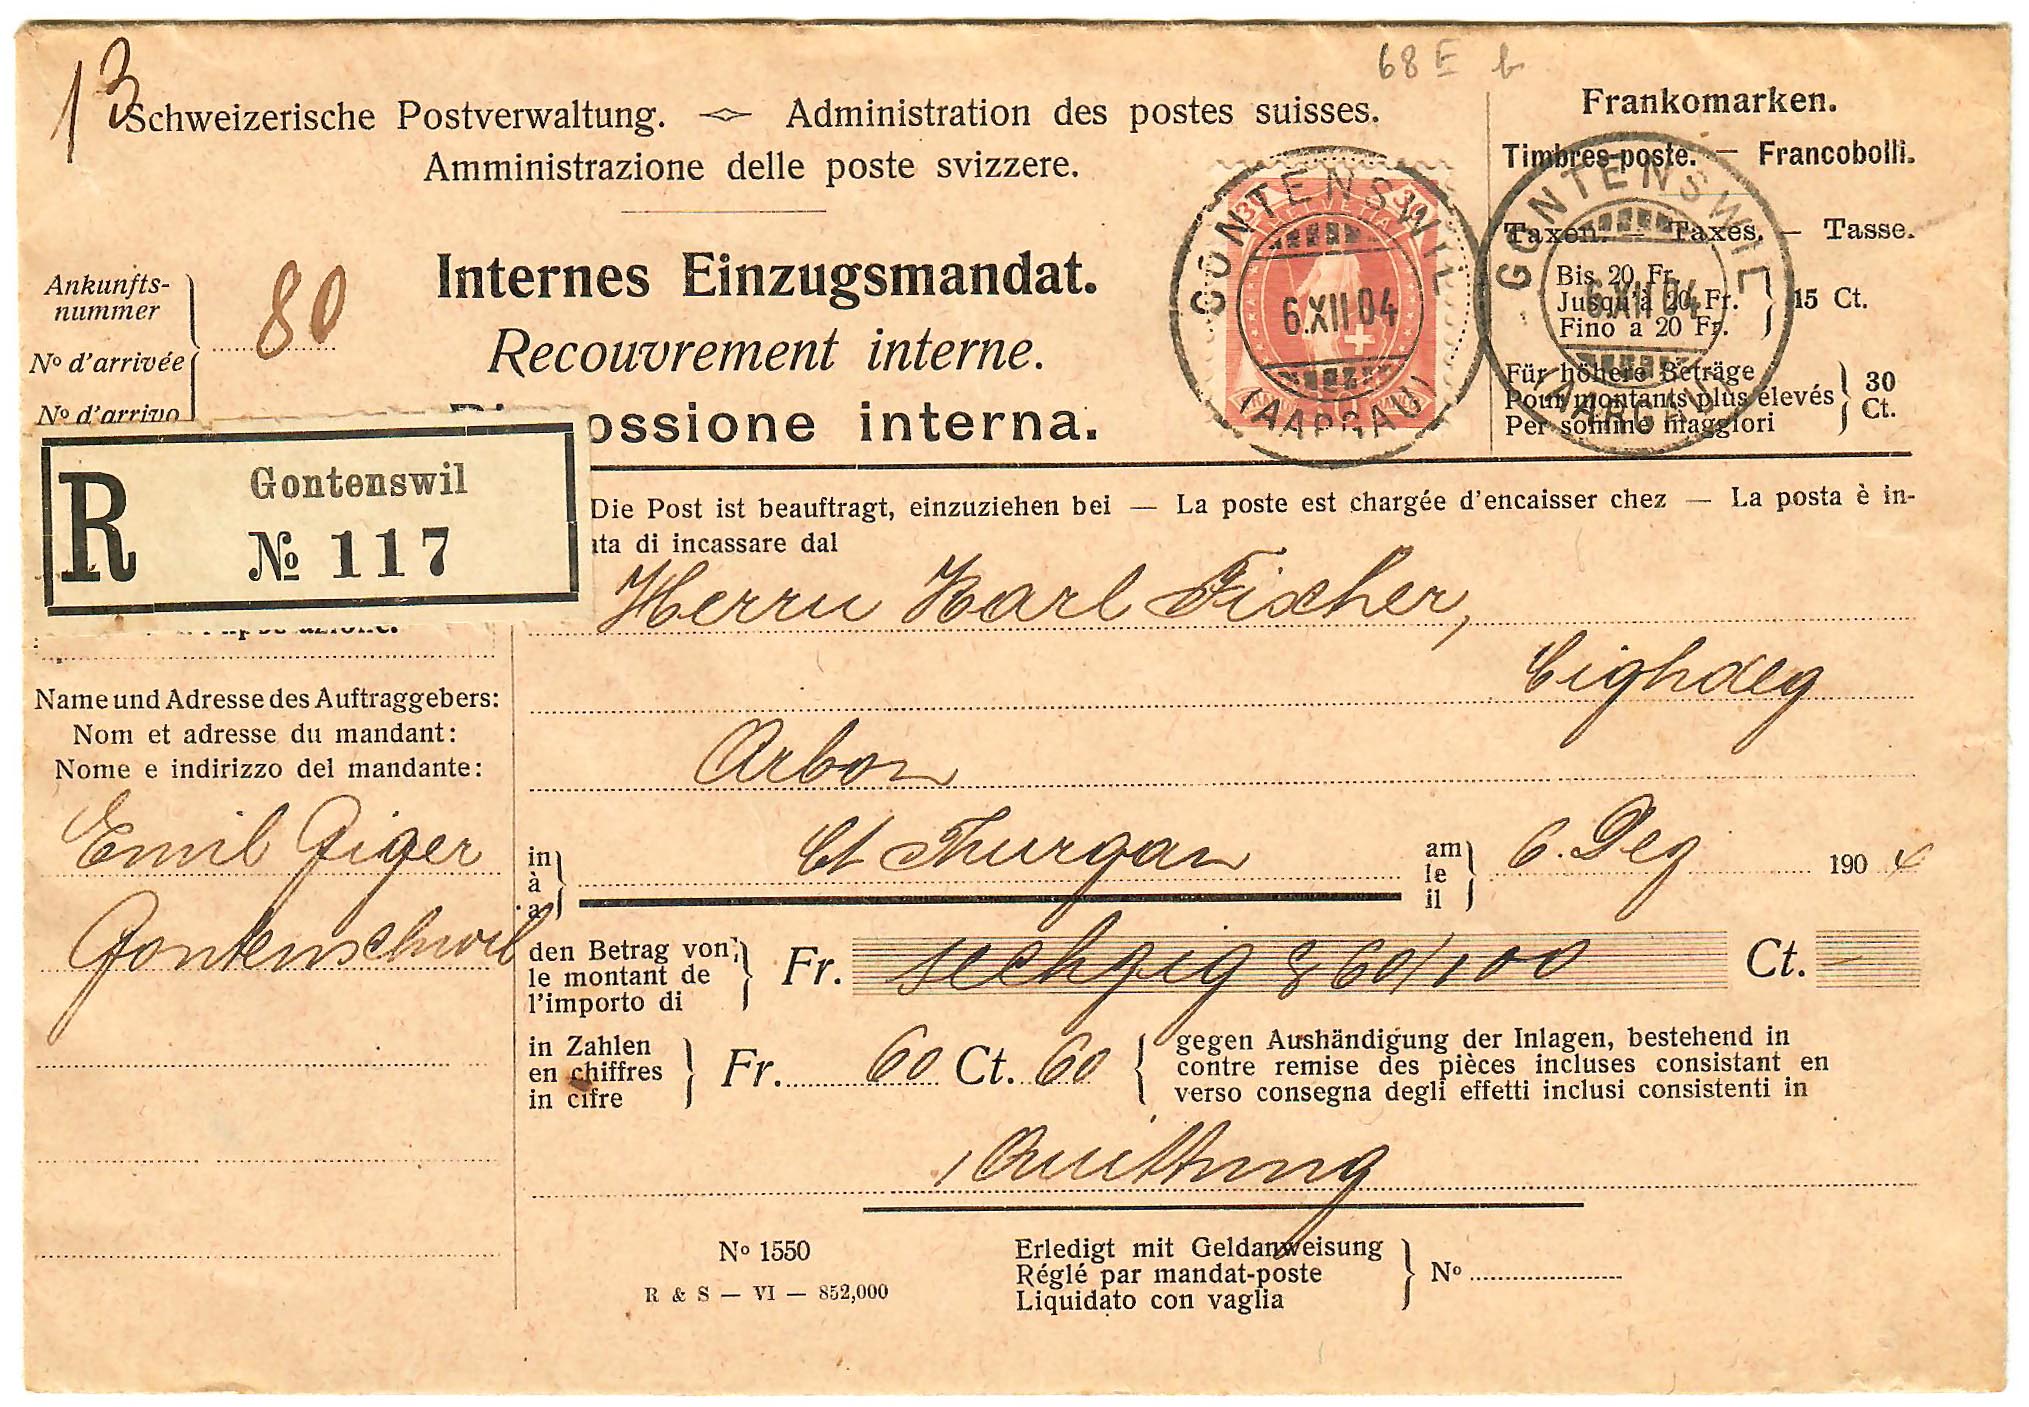 68 E b
13
Schweizerische Postverwaltung. — Administration des postes suisses.
Amministrazione delle poste svizzere.
Internes Einzugsmandat.
Recouvrement interne.
ossione interna.
Ankunfts-
nummer
No d'arrivée
No d'arrivo
80
30 HELVETIA 30
GONTENSWIL
6.XII 04
(AARGAU)
Frankomarken.
Timbres-poste. — Francobolli.
Taxen. — Taxes. — Tasse.
Bis 20 Fr.
Jusqu'à 20 Fr.
Fino a 20 Fr.
15 Ct.
Für höhere Beträge
Pour montants plus élevés
Per somme maggiori
30
Ct.
GONTENSWIL
6.XII 04
(AARGAU)
R
Gontenswil
№ 117
Die Post ist beauftragt, einzuziehen bei — La poste est chargée d'encaisser chez — La posta è in-
ta di incassare dal
Herrn Karl Fischer,
Arbon
Name und Adresse des Auftraggebers:
Nom et adresse du mandant:
Nome e indirizzo del mandante:
Emil Giger
Gontenschwil
in
à
a
Ct Thurgau
am
le
il
6. Dez 1904
den Betrag von
le montant de
l'importo di
Fr. sechzig & 60/100 Ct. –
in Zahlen
en chiffres
in cifre
Fr. 60 Ct. 60
gegen Aushändigung der Inlagen, bestehend in
contre remise des pièces incluses consistant en
verso consegna degli effetti inclusi consistenti in
1 Quittung
No 1550
R & S — VI — 852,000
Erledigt mit Geldanweisung
Réglé par mandat-poste
Liquidato con vaglia
No